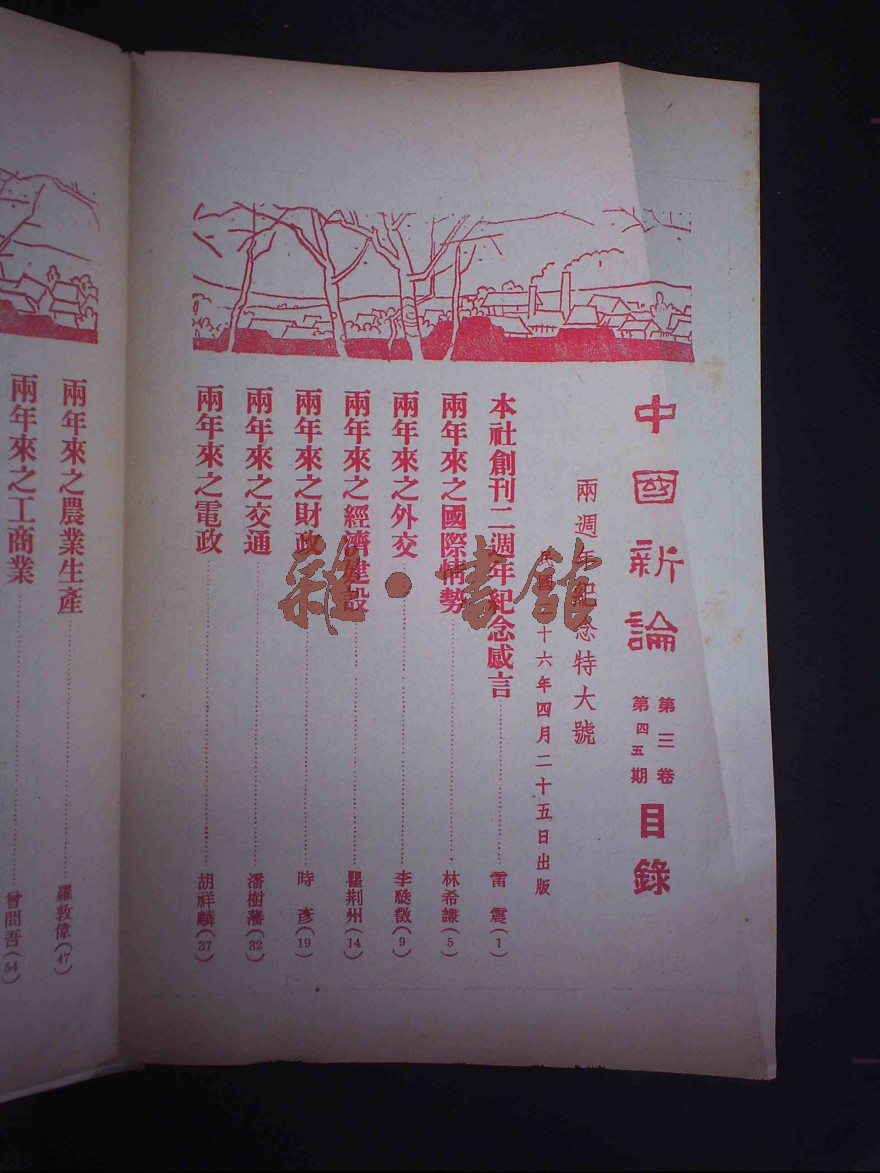 中國新論
第三卷
第四五期
目錄
兩週年紀念特大號
民國二十六年四月二十五日出版
本社創刊二週年紀念感言 雷震(1)
兩年來之國際情勢 林希謙(5)
兩年來之外交 李(9)
兩年來之經濟建設 瞿荆州(14)
兩年來之財政 時彥(19)
兩年來之交通 潘樹藩(32)
兩年來之電政 胡祥麟(37)
兩年來之農業生產 羅敦偉(47)
兩年來之工商業 曾問吾(54)
雜·書館